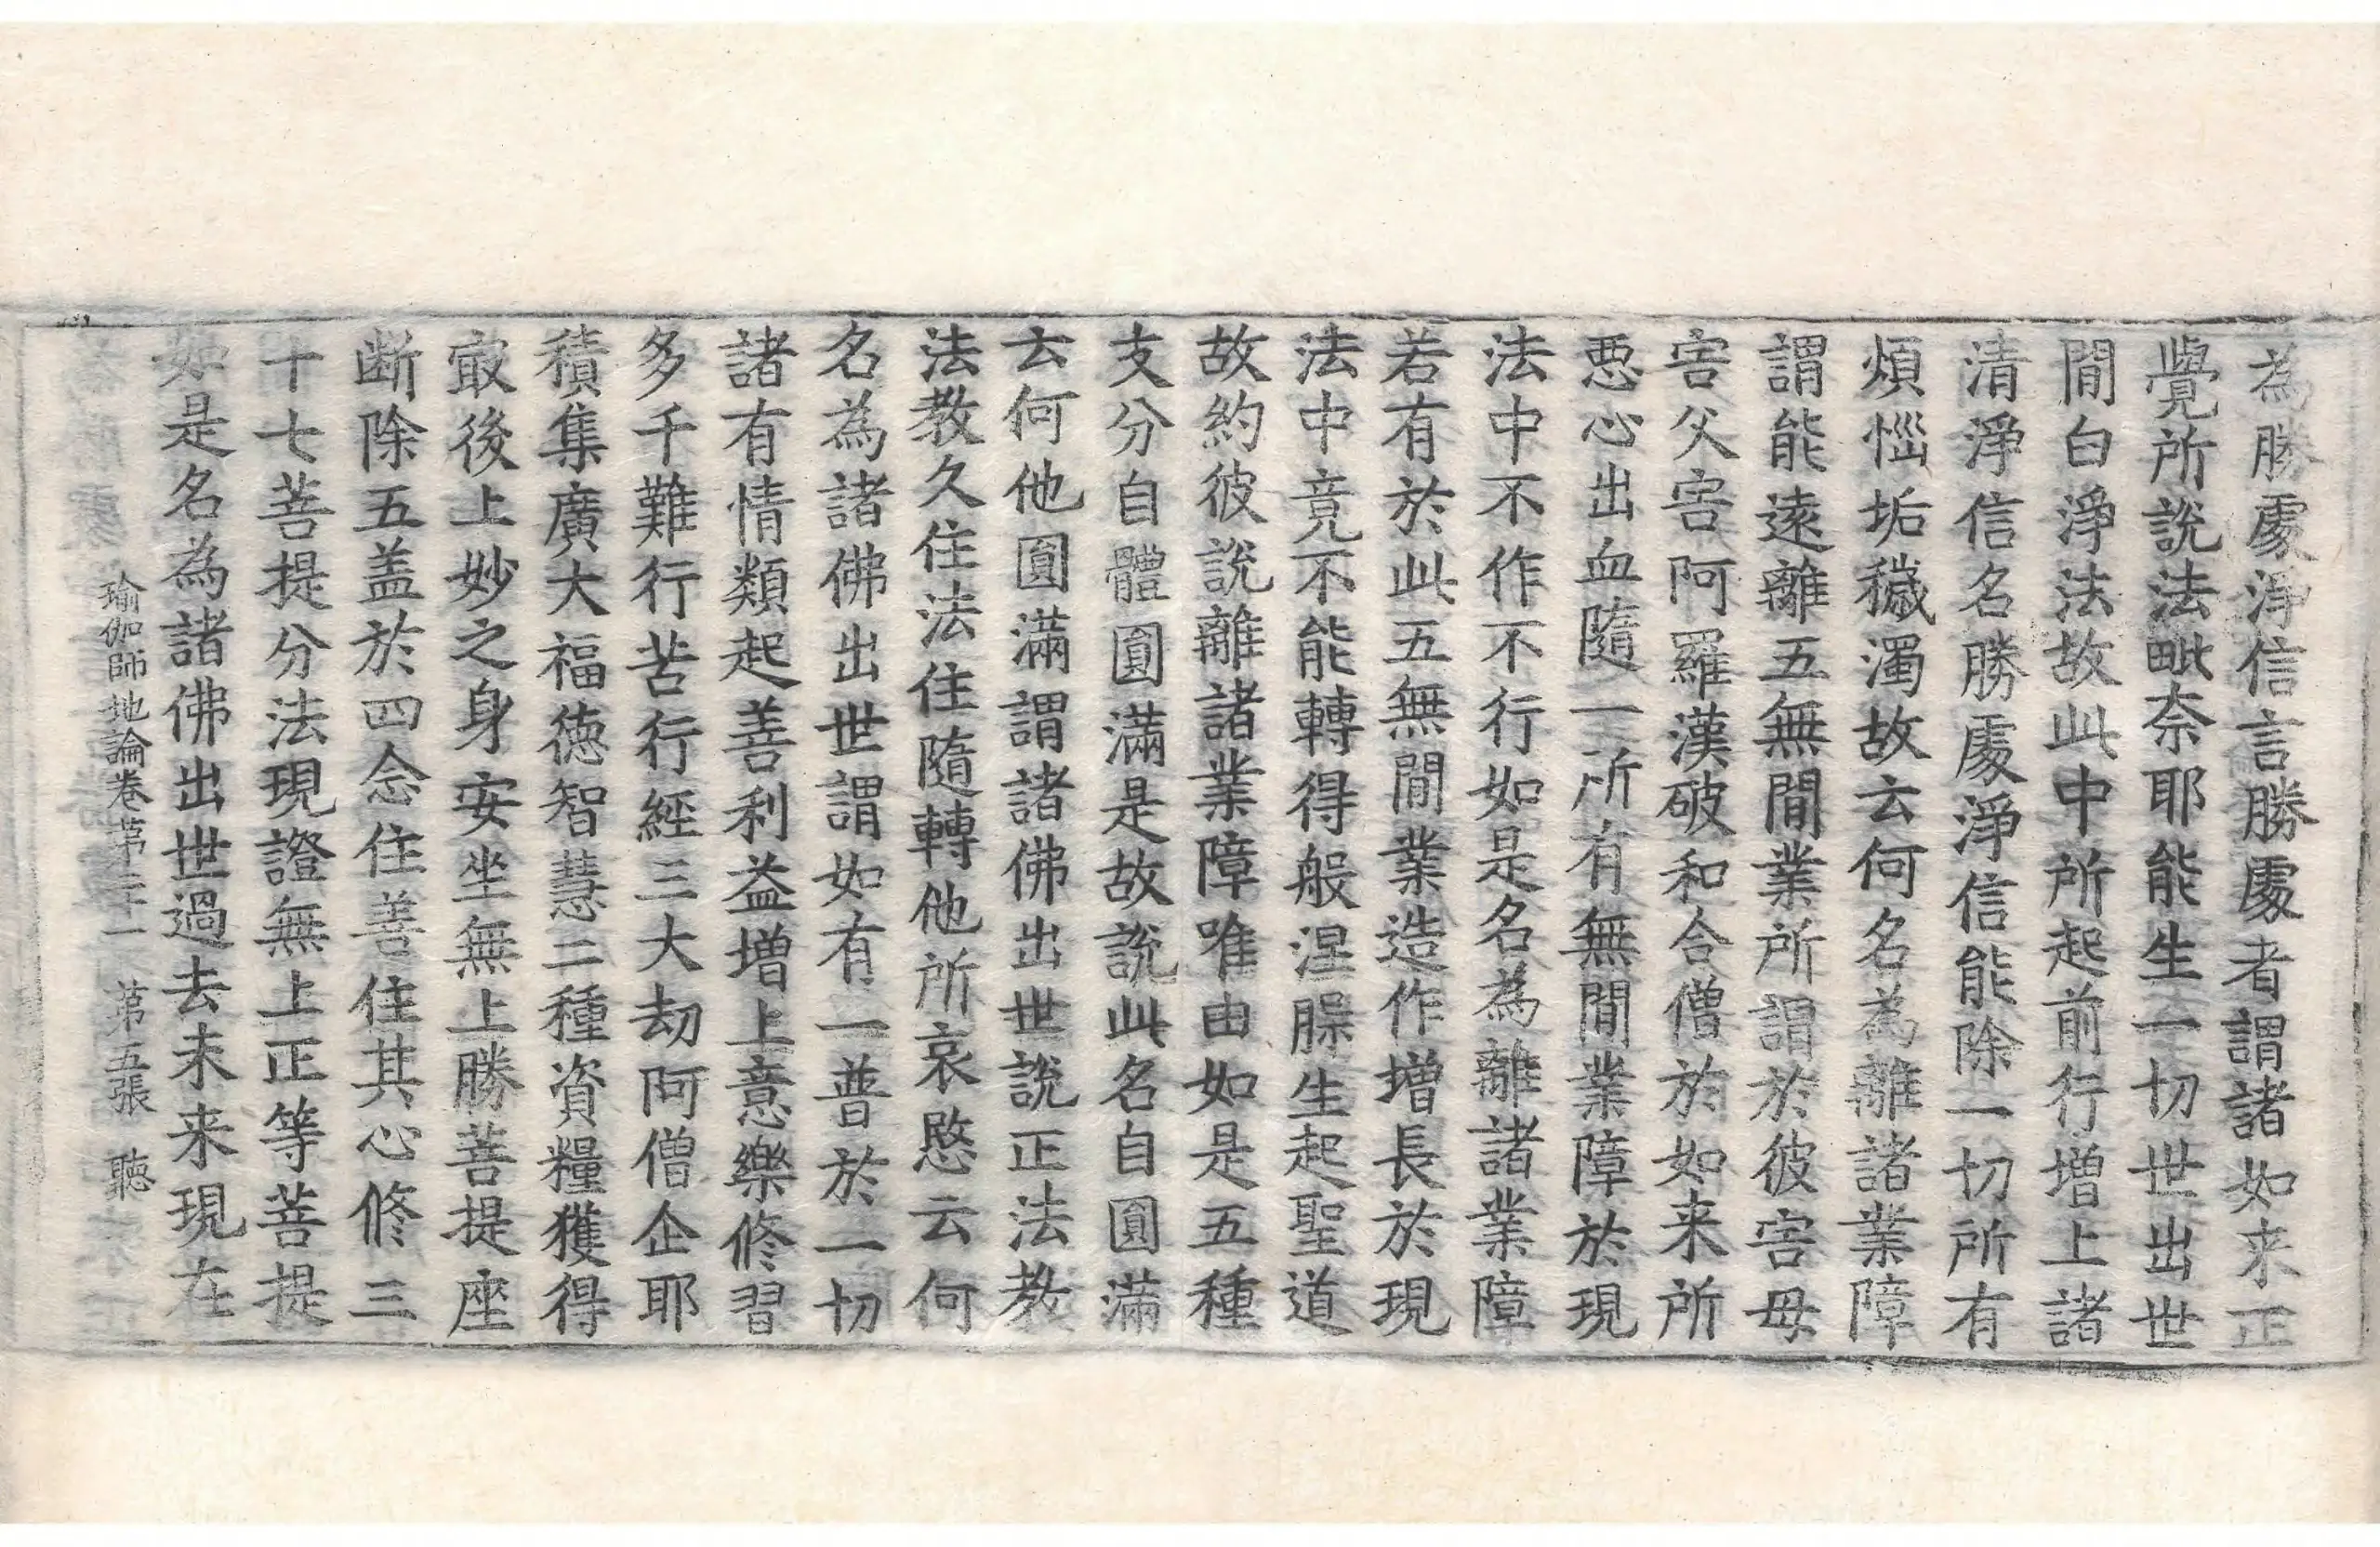 為勝處淨信言勝處者謂諸如来正
覺所說法毗奈耶能生一切世出世
間白淨法故此中所起前行增上諸
清淨信名勝處淨信能除一切所有
煩惱垢穢濁故云何名為離諸業障
謂能遠離五無間業所謂於彼害母
害父害阿羅漢破和合僧於如来所
惡心出血隨一所有無間業障於現
法中不作不行如是名為離諸業障
若有於此五無間業造作增長於現
法中竟不能轉得般涅槃生起聖道
故約彼說離諸業障唯由如是五種
支分自體圓滿是故說此名自圓滿
云何他圓滿謂諸佛出世說正法教
法教久住法住隨轉他所哀愍云何
名為諸佛出世謂如有一普於一切
諸有情類起善利益增上意樂修習
多千難行苦行經三大劫阿僧企耶
積集廣大福德智慧二種資糧獲得
㝡後上妙之身安坐無上勝菩提座
斷除五盖於四念住善住其心修三
十七菩提分法現證無上正等菩提
如是名為諸佛出世過去未来現在
瑜伽師地論卷第二十一 第五張 聽